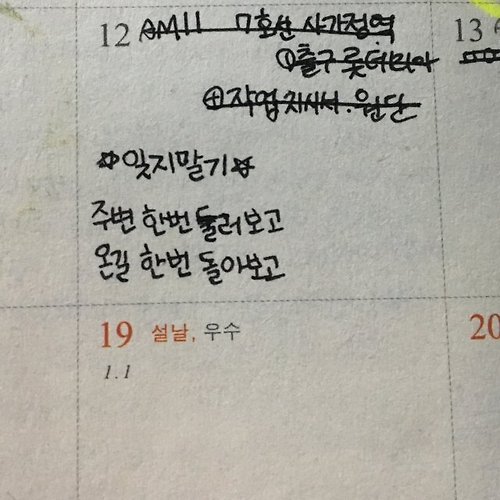 12 AM11 7호선 사가정역 13
①출구 롯데리아
⊕작업지시서.원단
☆잊지말기☆
주변 한번 둘러보고
온길 한번 돌아보고
19 설날, 우수 20
1.1